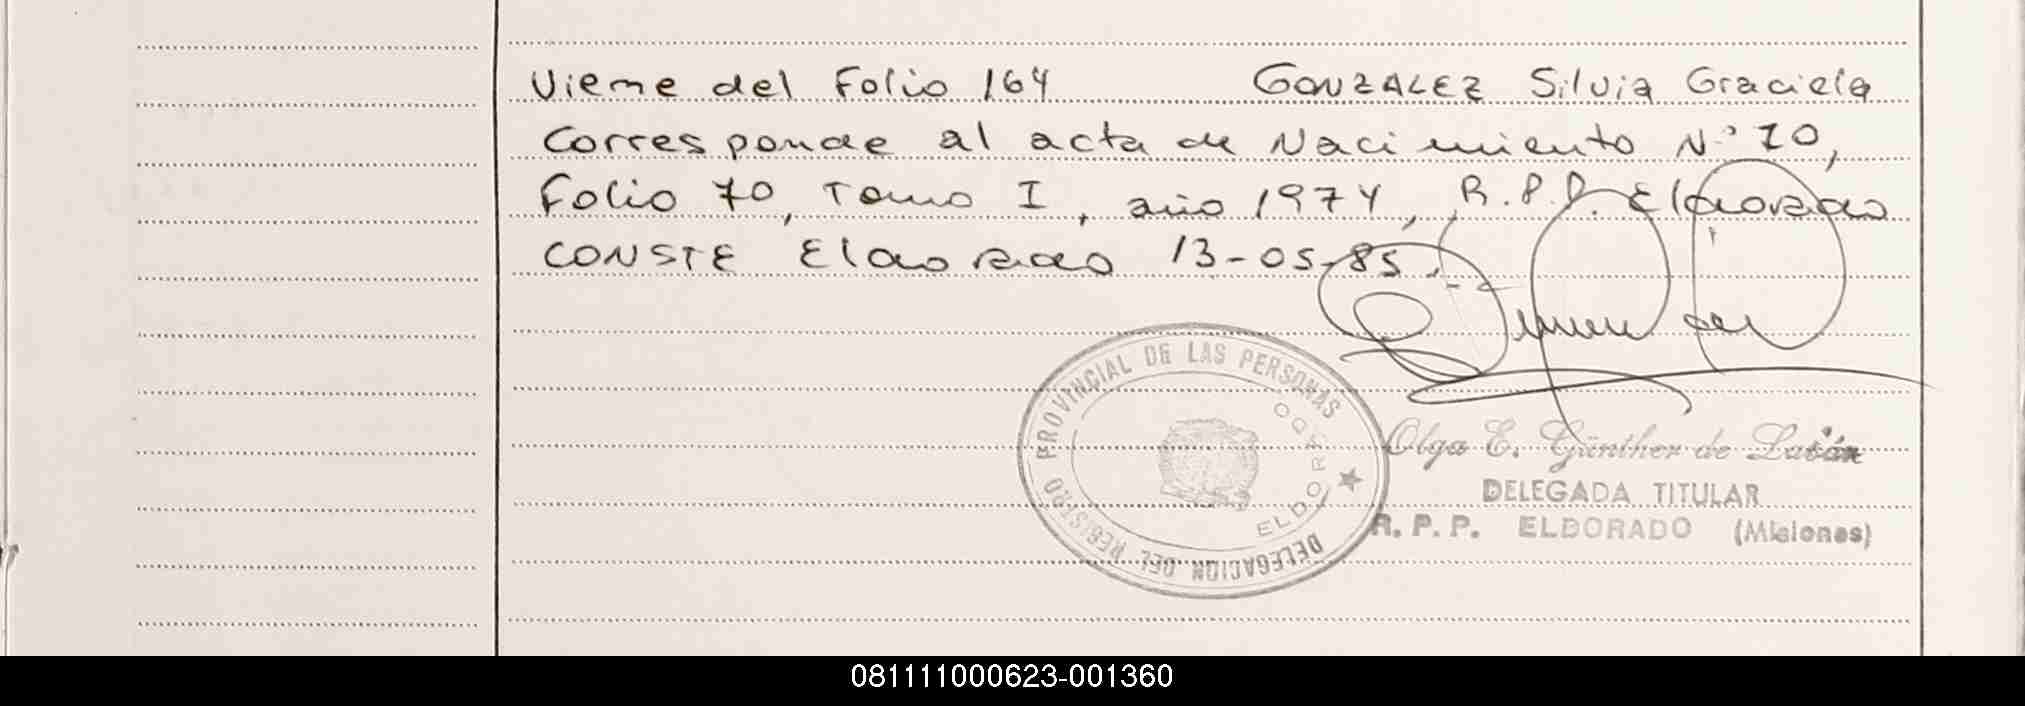 Viene del Folio 164 GONZALEZ Silvia Graciela
Corresponde al acta de Nacimiento Nº 70,
Folio 70, Tomo I, año 1974, R.P.P. Eldorado
CONSTE Eldorado 13-05-85.
DELEGACION DEL REGISTRO PROVINCIAL DE LAS PERSONAS
ELDORADO
Olga E. Günther de
DELEGADA TITULAR
R. P. P. ELDORADO (Misiones)
081111000623-001360